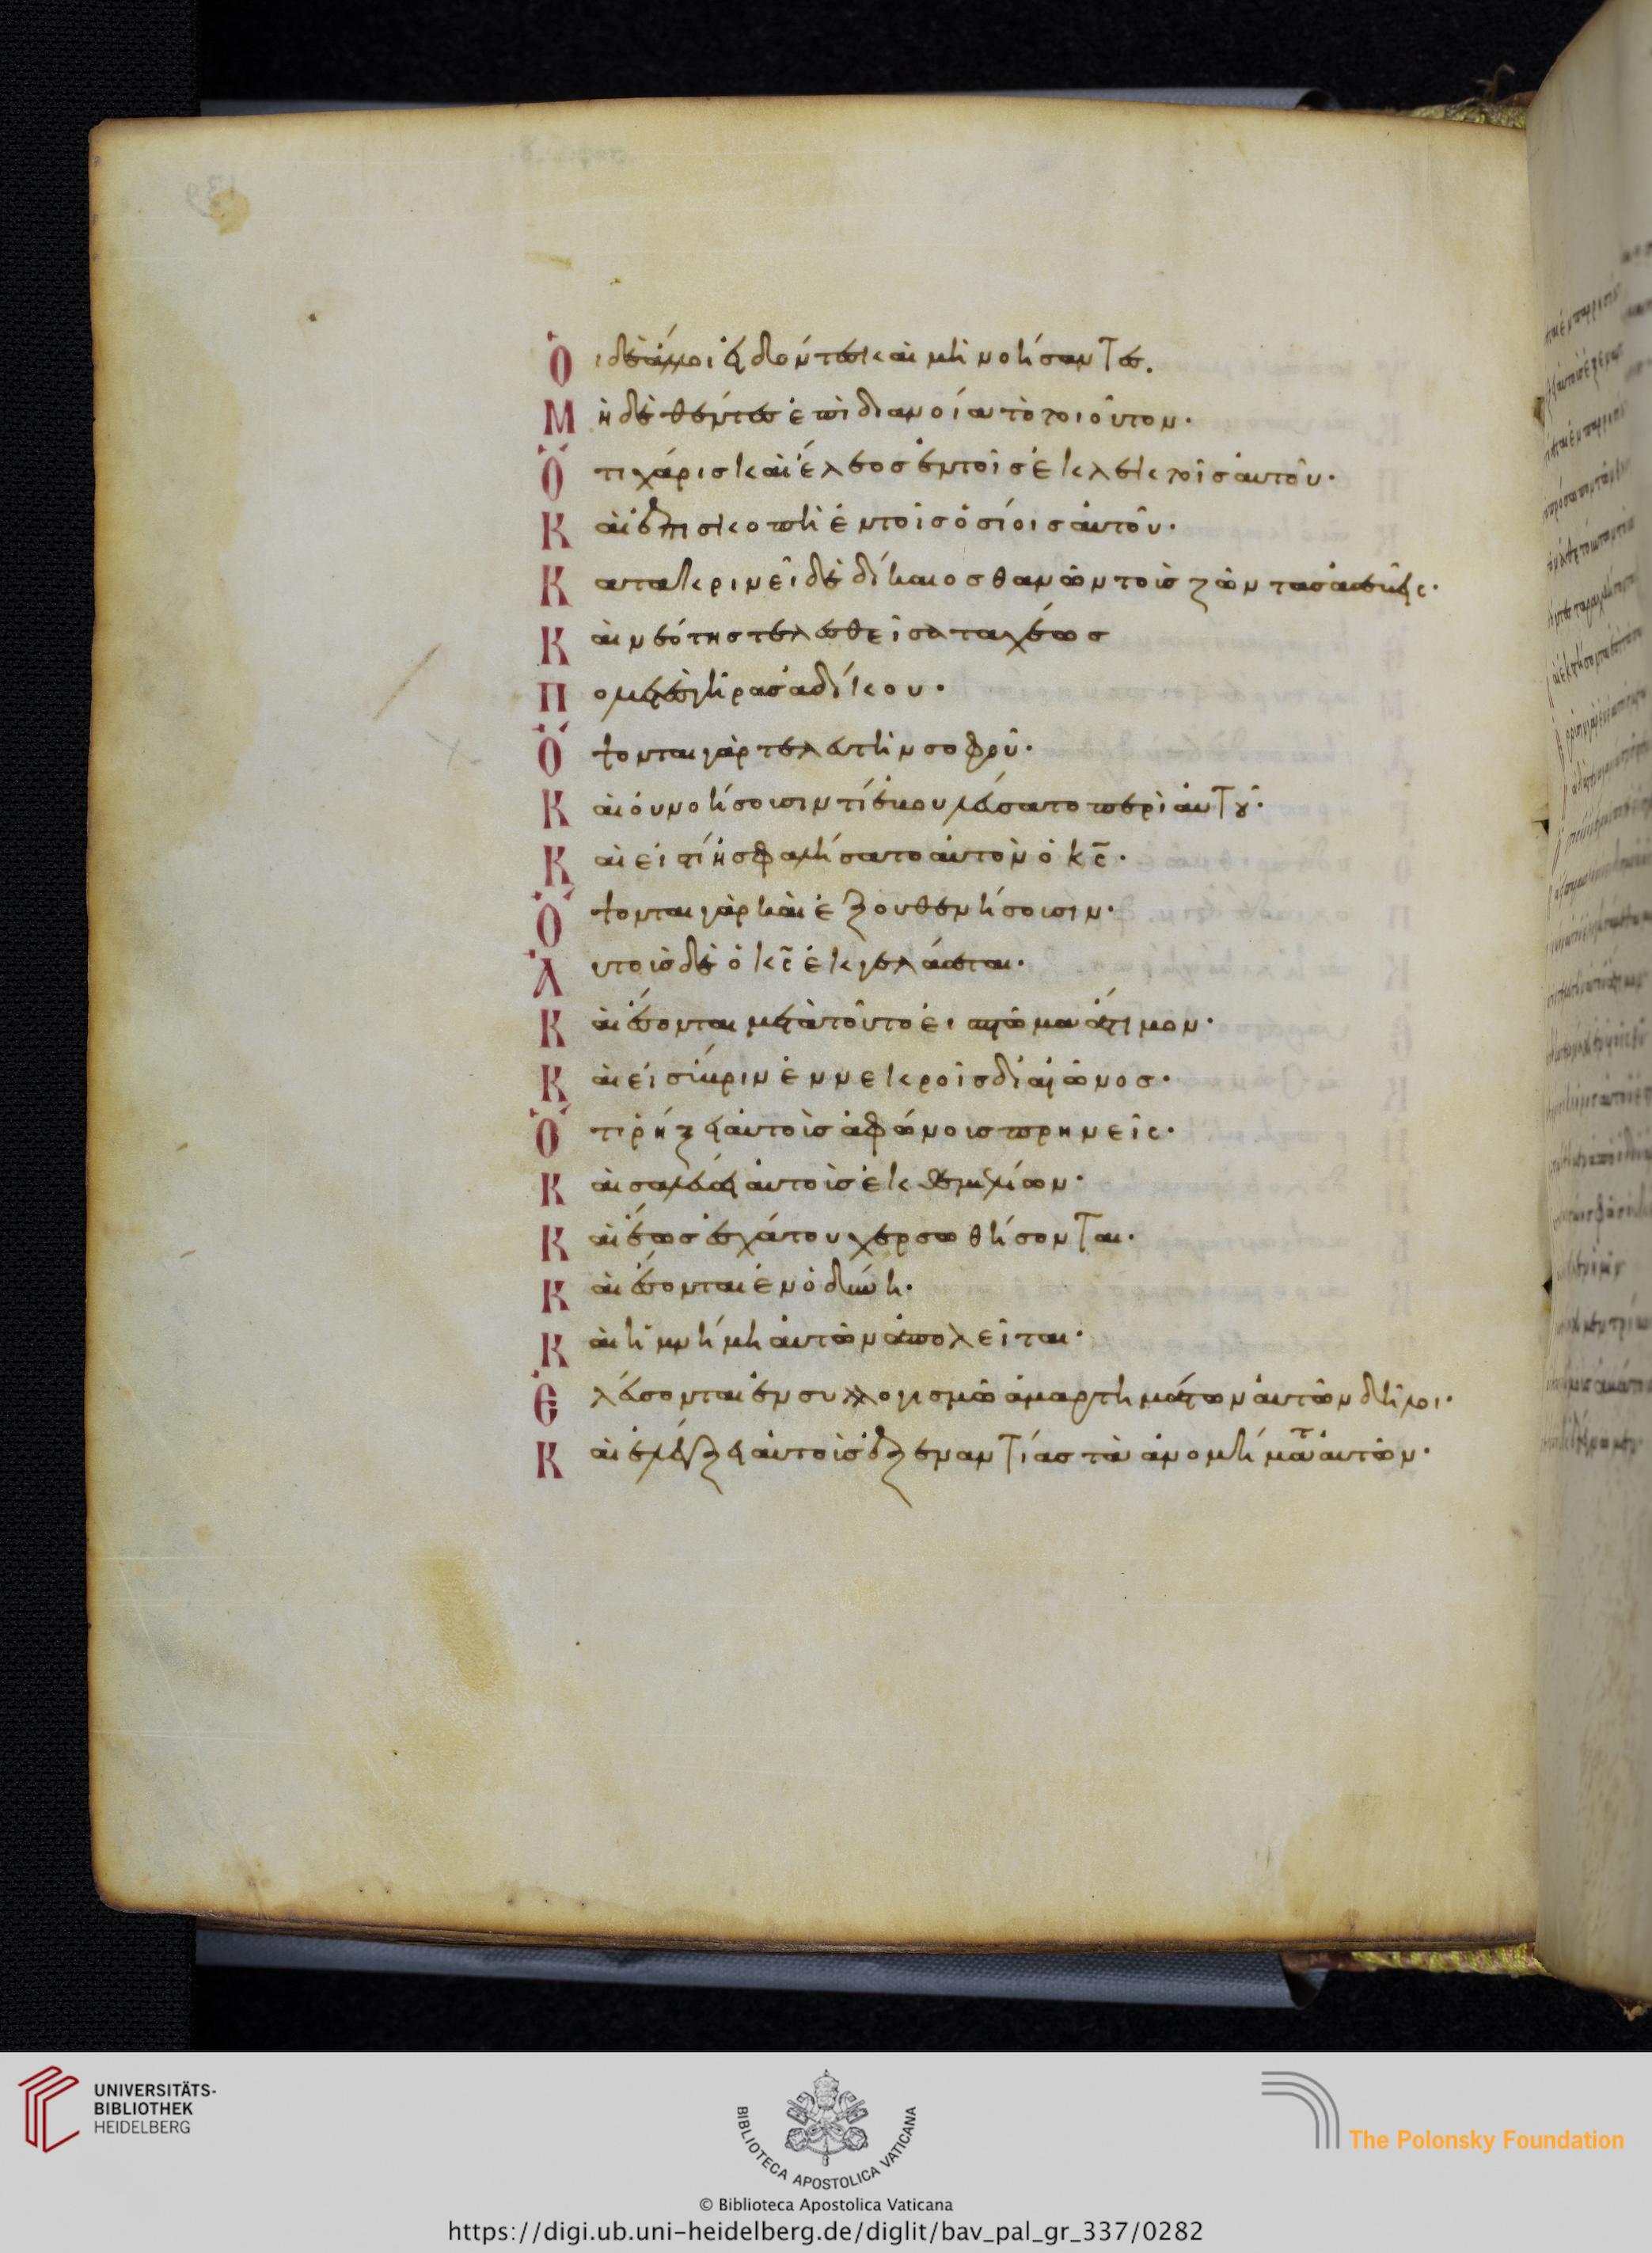 Οἱ δὲ λαοὶ ἰδόντες καὶ μὴ νοήσαντες.
Μηδὲ θέντες ἐπὶ διανοία τὸ τοιοῦτον·
Ὅτι χάρις καὶ ἔλεος ἐν τοῖς ἐκλεκτοῖς αὐτοῦ·
Καὶ ἐπισκοπὴ ἐν τοῖς ὁσίοις αὐτοῦ·
Κατακρινεῖ δὲ δίκαιος θανὼν τοὺς ζῶντας ἀσεβεῖς·
Καὶ νεότης τελεσθεῖσα ταχέως
Πολυετὲς γῆρας ἀδίκου·
Ὄψονται γὰρ τελευτὴν σοφοῦ·
Καὶ οὐ νοήσουσιν τί ἐβουλεύσατο περὶ αὐτοῦ·
Καὶ εἰς τί ἠσφαλίσατο αὐτὸν ὁ κς·
Ὄψονται γὰρ καὶ ἐξουθενήσουσιν·
Αὐτοὺς δὲ ὁ κς ἐκγελάσεται·
Καὶ ἔσονται μετὰ τοῦτο εἰς πτῶμα ἄτιμον·
Καὶ εἰς ὕβριν ἐν νεκροῖς δι' αἰῶνος·
Ὅτι ῥήξει αὐτοὺς ἀφώνους πρηνεῖς·
Καὶ σαλεύσει αὐτοὺς ἐκ θεμελίων·
Καὶ ἕως ἐσχάτου χερσωθήσονται·
Καὶ ἔσονται ἐν ὀδύνη·
Καὶ ἡ μνήμη αὐτῶν ἀπολεῖται·
Ἐλεύσονται ἐν συλλογισμῶ ἁμαρτημάτων αὐτῶν δειλοι·
Καὶ ἐλέγξει αὐτοὺς ἐξεναντίας τὰ ἀνομήματα αὐτῶν·
UNIVERSITÄTS-
BIBLIOTHEK
HEIDELBERG
BIBLIOTECA APOSTOLICA VATICANA
The Polonsky Foundation
© Biblioteca Apostolica Vaticana
https://digi.ub.uni-heidelberg.de/diglit/bav_pal_gr_337/0282